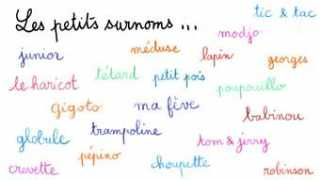 Les petits surnoms ...
tic & tac
modjo
junior
méduse
lapin
georges
le haricot
têtard
petit pois
poupouillo
gigoto
ma fève
babinou
globule
trampoline
tom & jerry
pépino
crevette
choupette
robinson